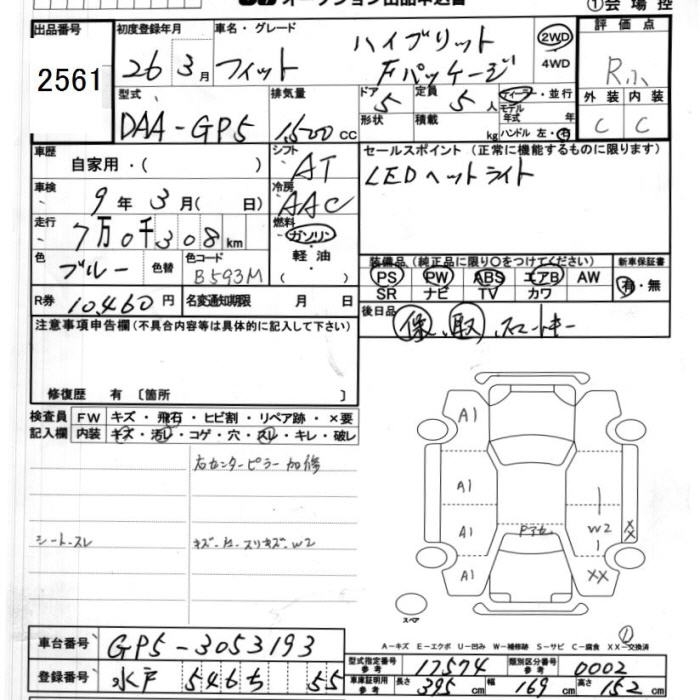 オークション出品申込書 ①会場控
出品番号 初度登録年月 車名・グレード 評価点
2561 26年 3月 フィット ハイブリット Fパッケージ 2WD 4WD R
型式 排気量 ドア 定員 ディーラー・並行 外装 内装
DAA-GP5 1,500 cc 5 5人 モデル年式 年 C C
形状 積載 kg ハンドル 左・右
車歴 自家用・( ) シフト AT セールスポイント(正常に機能するものに限ります)
車検 9年 3月( 日) 冷房 AAC LEDヘットライト
走行 7万0千308km 燃料 ガソリン・軽油・( )
色 ブルー 色替 色コード B593M
装備品(純正品に限り○をつけてください) 新車保証書
PS PW ABS エアB AW 有・無
SR ナビ TV カワ
R券 10,460円 名変通知期限 月 日
後日品 保、取、スマートキー
注意事項申告欄(不具合内容等は具体的に記入して下さい)
修復歴 有〔箇所 〕
検査員 FW キズ・飛石・ヒビ割・リペア跡・×要
記入欄 内装 キズ・汚レ・コゲ・穴・スレ・キレ・破レ
右センターピラー加修
シートスレ
A1
A1
A1 Pアセ W2 XX
A1 XX
スペア
A-キズ E-エクボ U-凹み W-補修跡 S-サビ C-腐食 XX-交換済
①
車台番号 GP5-3053193
型式指定番号 参考 17574 類別区分番号 参考 0002
登録番号 水戸 546 55
車庫証明用参考 長さ 395cm 幅 169cm 高さ 152cm